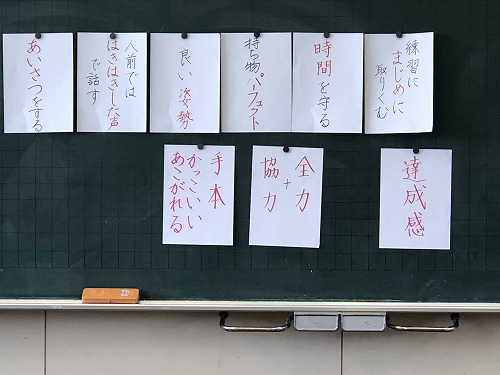 練習に
まじめに
取りくむ
時間を守る
持ち物パーフェクト
良い姿勢
人前では
はきはきした声
で話す
あいさつをする
達成感
全力
+
協力
手本
かっこいい
あこがれる